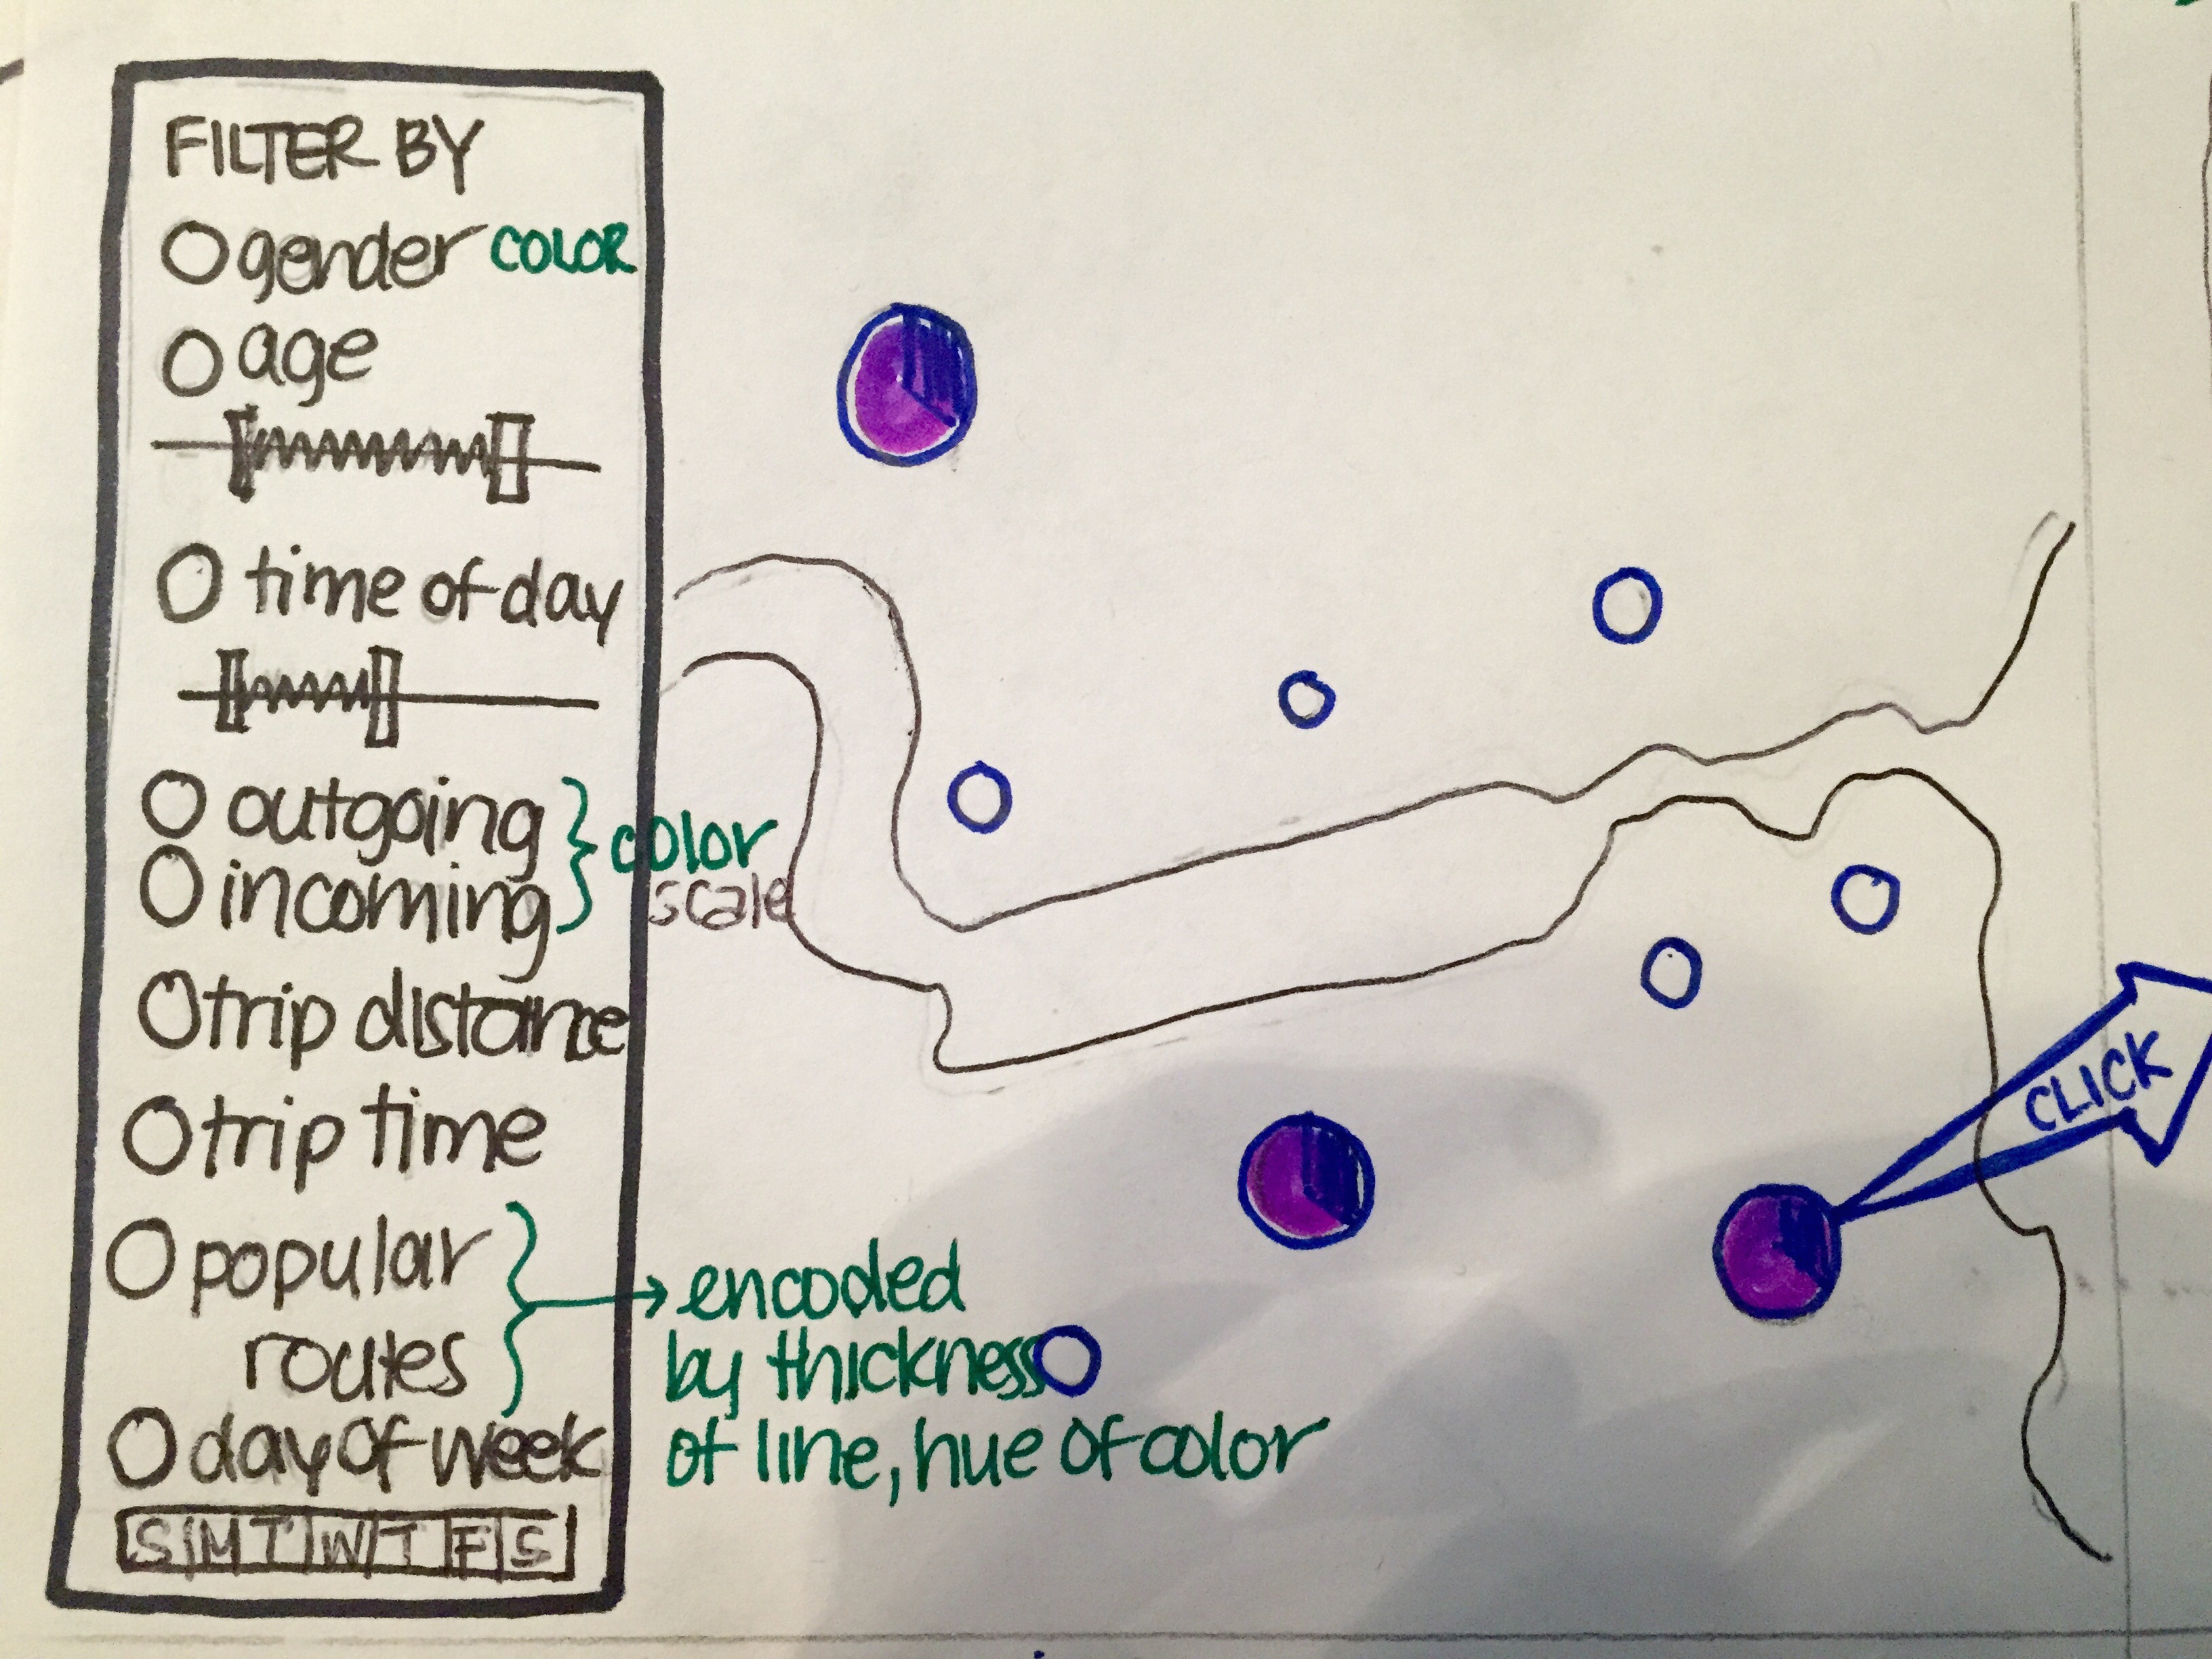 FILTER BY
gender COLOR
age
time of day
outgoing
incoming
color
scale
trip distance
trip time
popular
routes
encoded
by thickness
of line, hue of color
day of week
S M T W T F S
CLICK